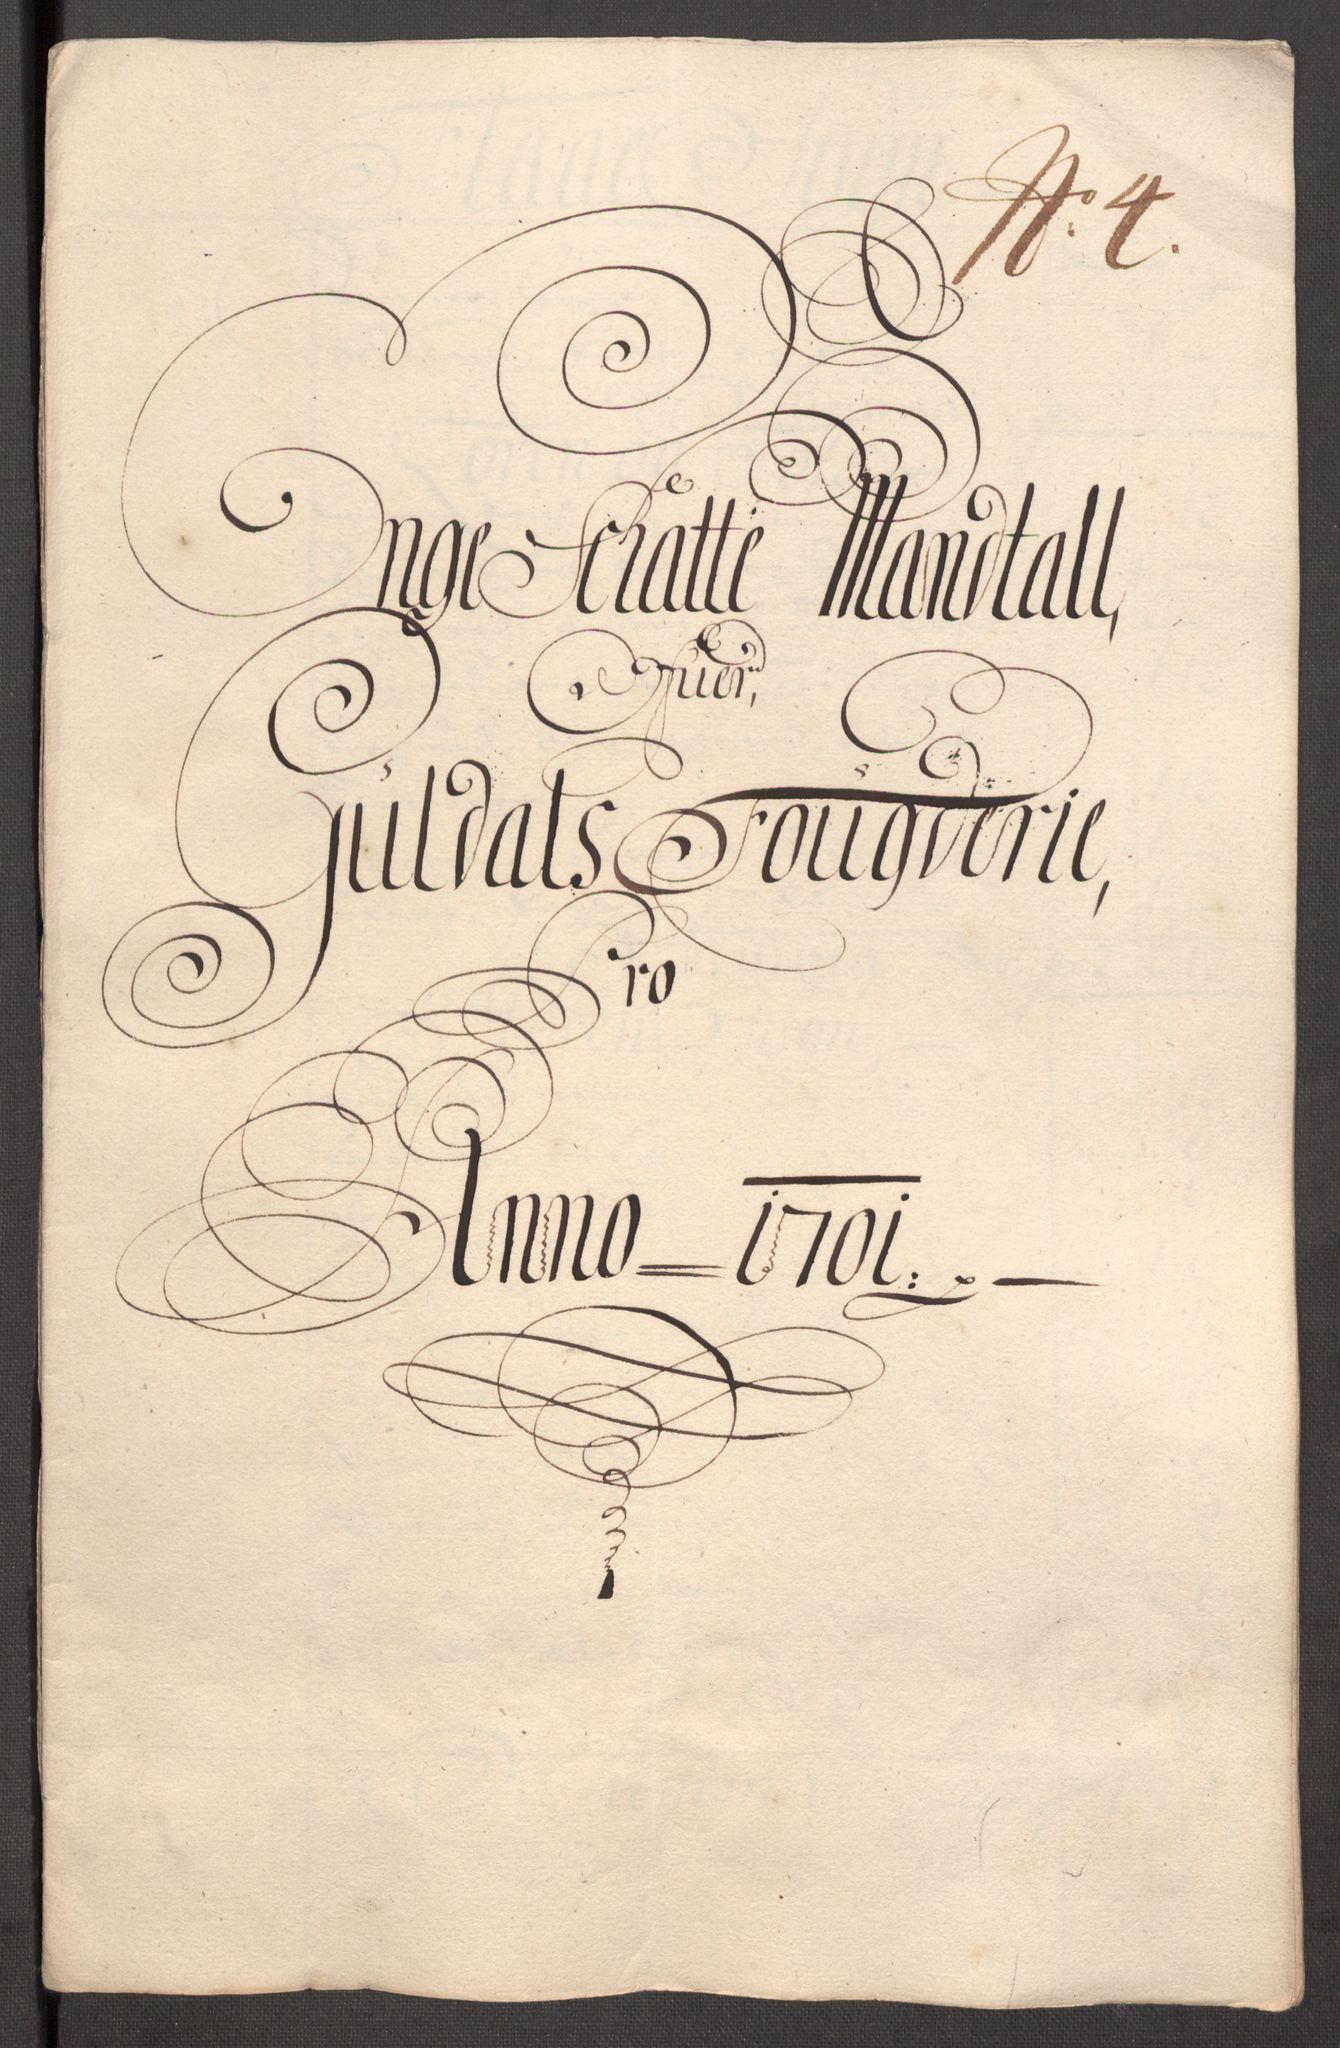 No. 4.
Unge Schatte Mandtall,
Ofuer,
Guldals Fougderie,
Pro
Anno 1701.